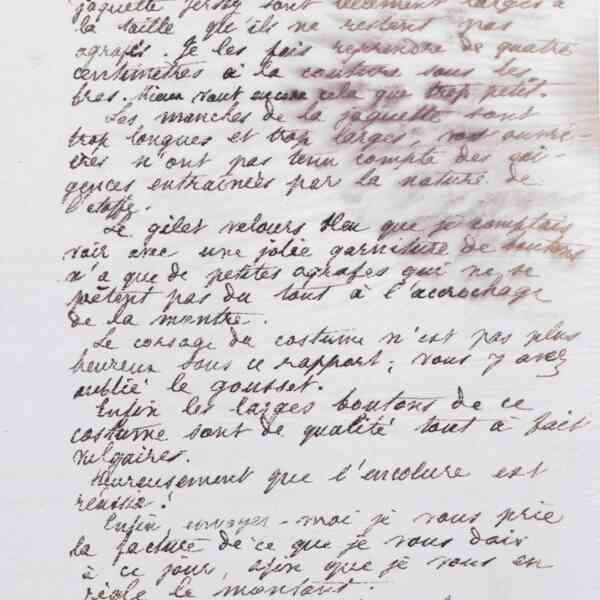 jaquette jersey sont tellement larges à
la taille qu'ils ne restent pas
agrafés. Je les fais reprendre de quatre
centimètres à la couture sous les
bras. Mieux vaut encore cela que trop petit.
Les manches de la jaquette sont
trop longues et trop larges, vos ouvri-
ères n'ont pas tenu compte des exi-
gences entraînées par la nature de
l'étoffe.
Le gilet velours bleu que je comptais
voir avec une jolie garniture de boutons
n'a que de petites agrafes qui ne se
prêtent pas du tout à l'accrochage
de la montre.
Le corsage du costume n'est pas plus
heureux sous ce rapport; vous y avez
oublié le gousset.
Enfin les larges boutons de ce
costume sont de qualité tout à fait
vulgaires.
Heureusement que l'encolure est
réussie!
Enfin, envoyez-moi je vous prie
la facture de ce que je vous dois
à ce jour, afin que je vous en
règle le montant.